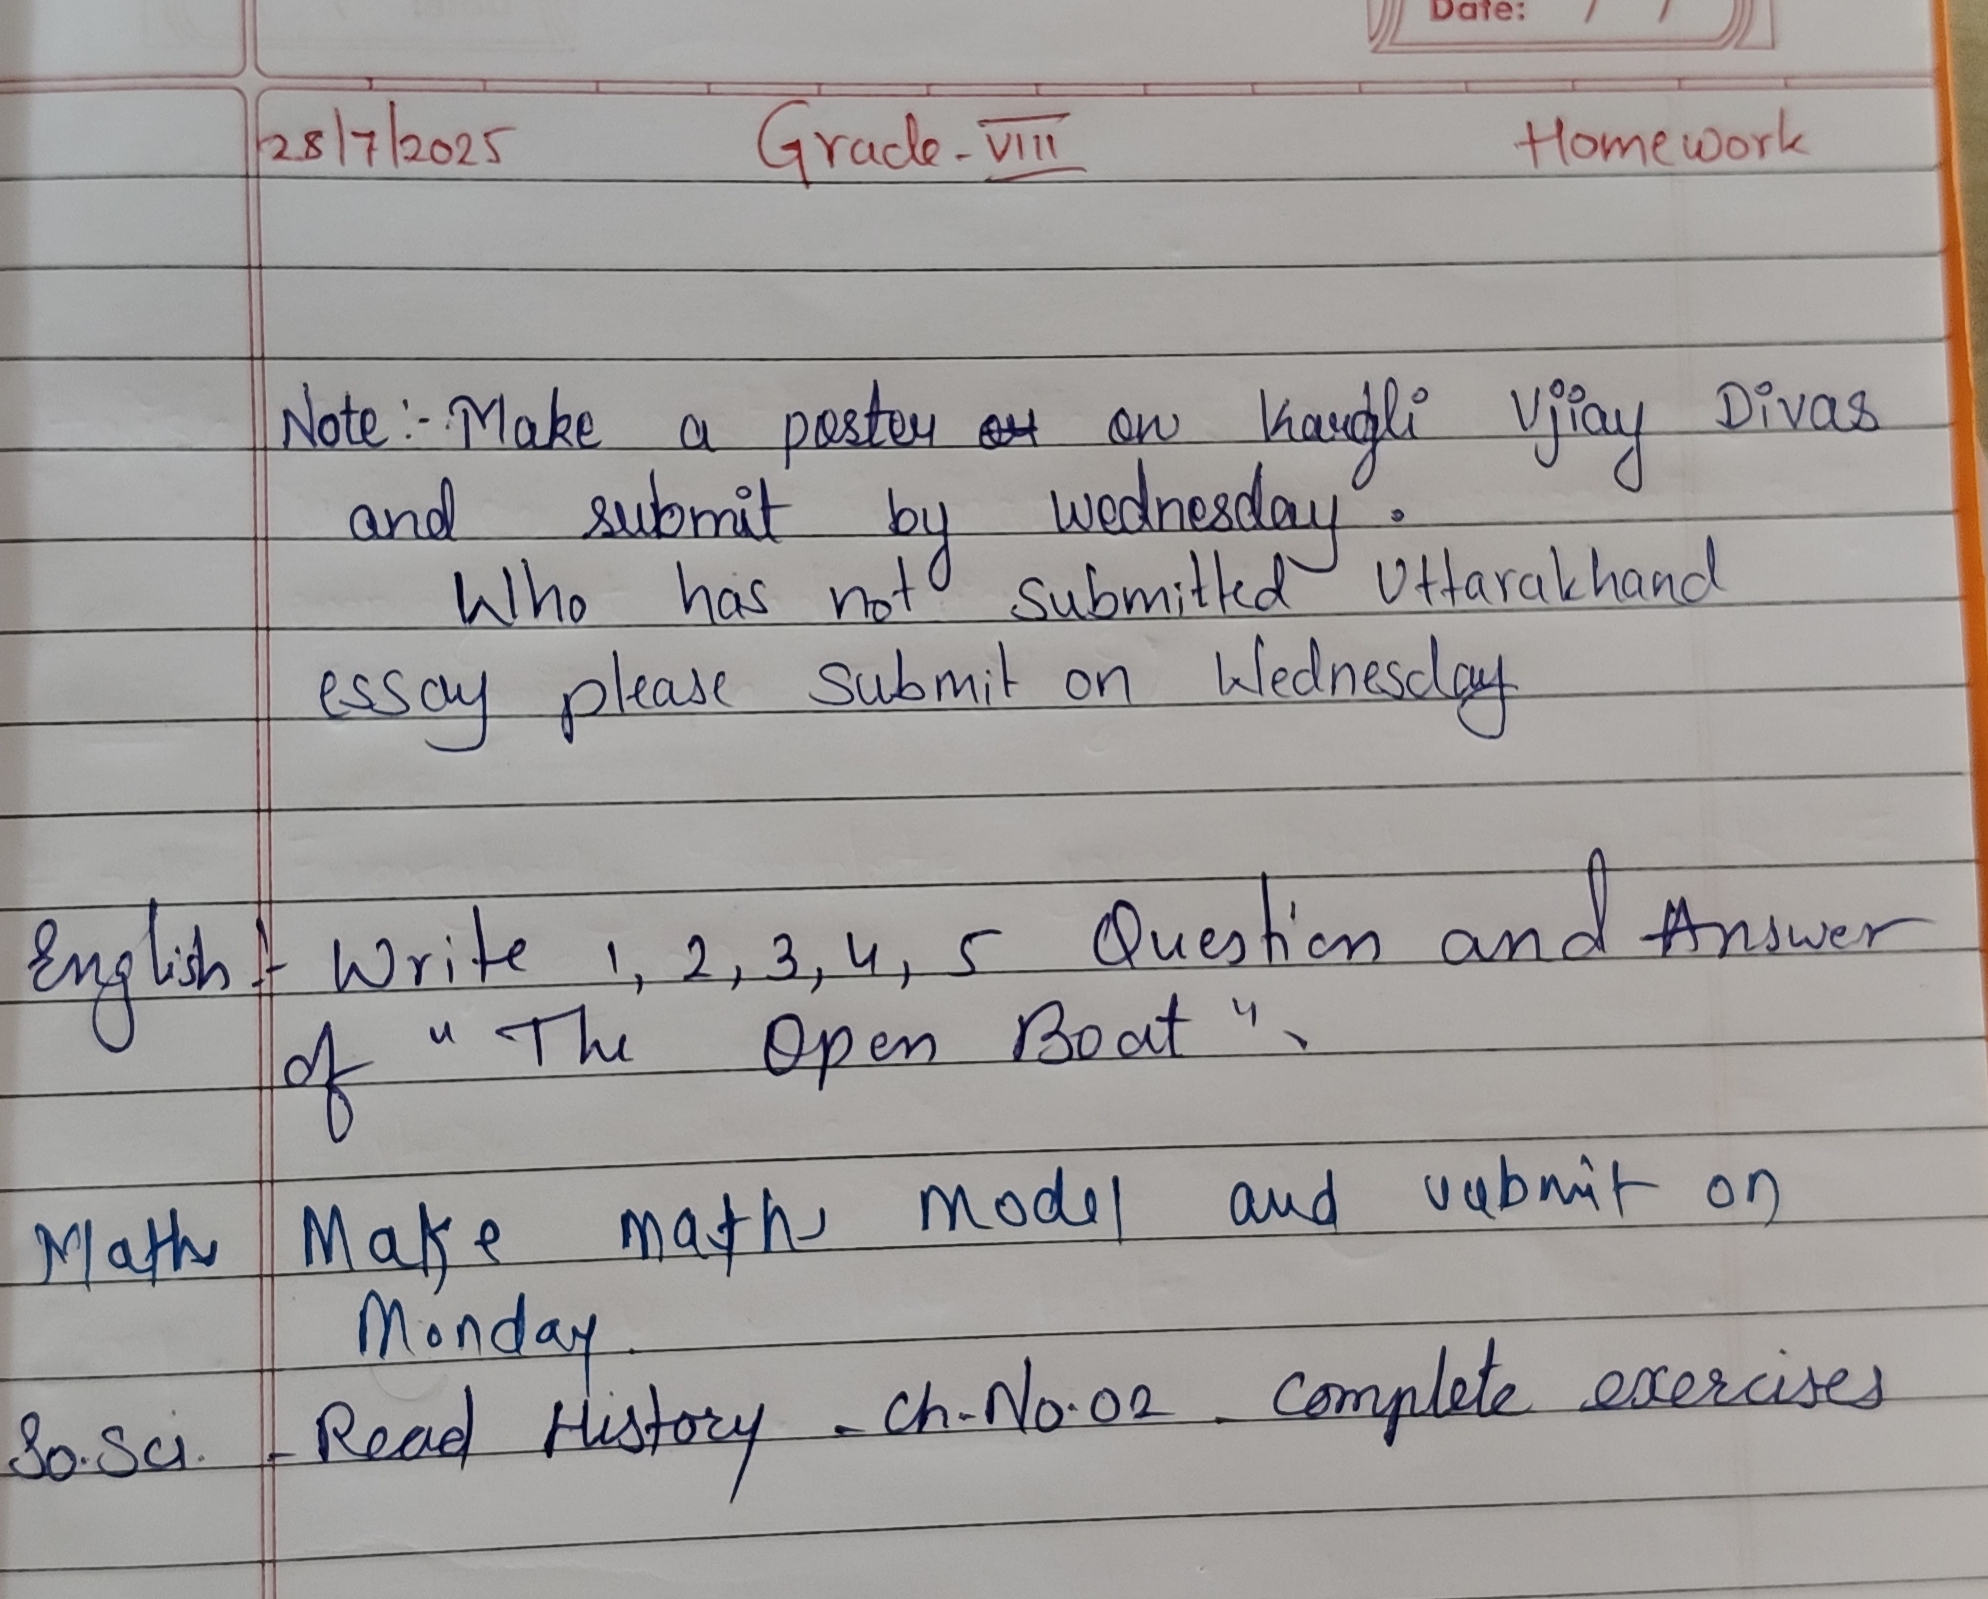 Date: / /
28/7/2025 Grade-VIII Homework
Note:- Make a poster on Kargli Vjiay Divas
and submit by wednesday.
Who has not submitted Uttarakhand
essay please submit on Wednesday
English:- Write 1, 2, 3, 4, 5 Question and Answer
of "The Open Boat".
Maths Make maths model and submit on
Monday.
So.Sci. - Read History - Ch-No.02 - Complete exercises